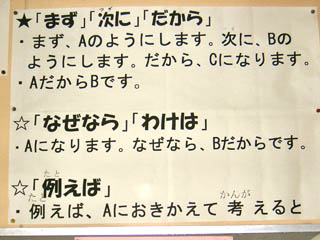 ★「まず」「次に」「だから」
・まず、Aのようにします。次に、Bの
ようにします。だから、Cになります。
・AだからBです。
☆「なぜなら」「わけは」
・Aになります。なぜなら、Bだからです。
☆「例えば」
・例えば、Aにおきかえて 考 えると